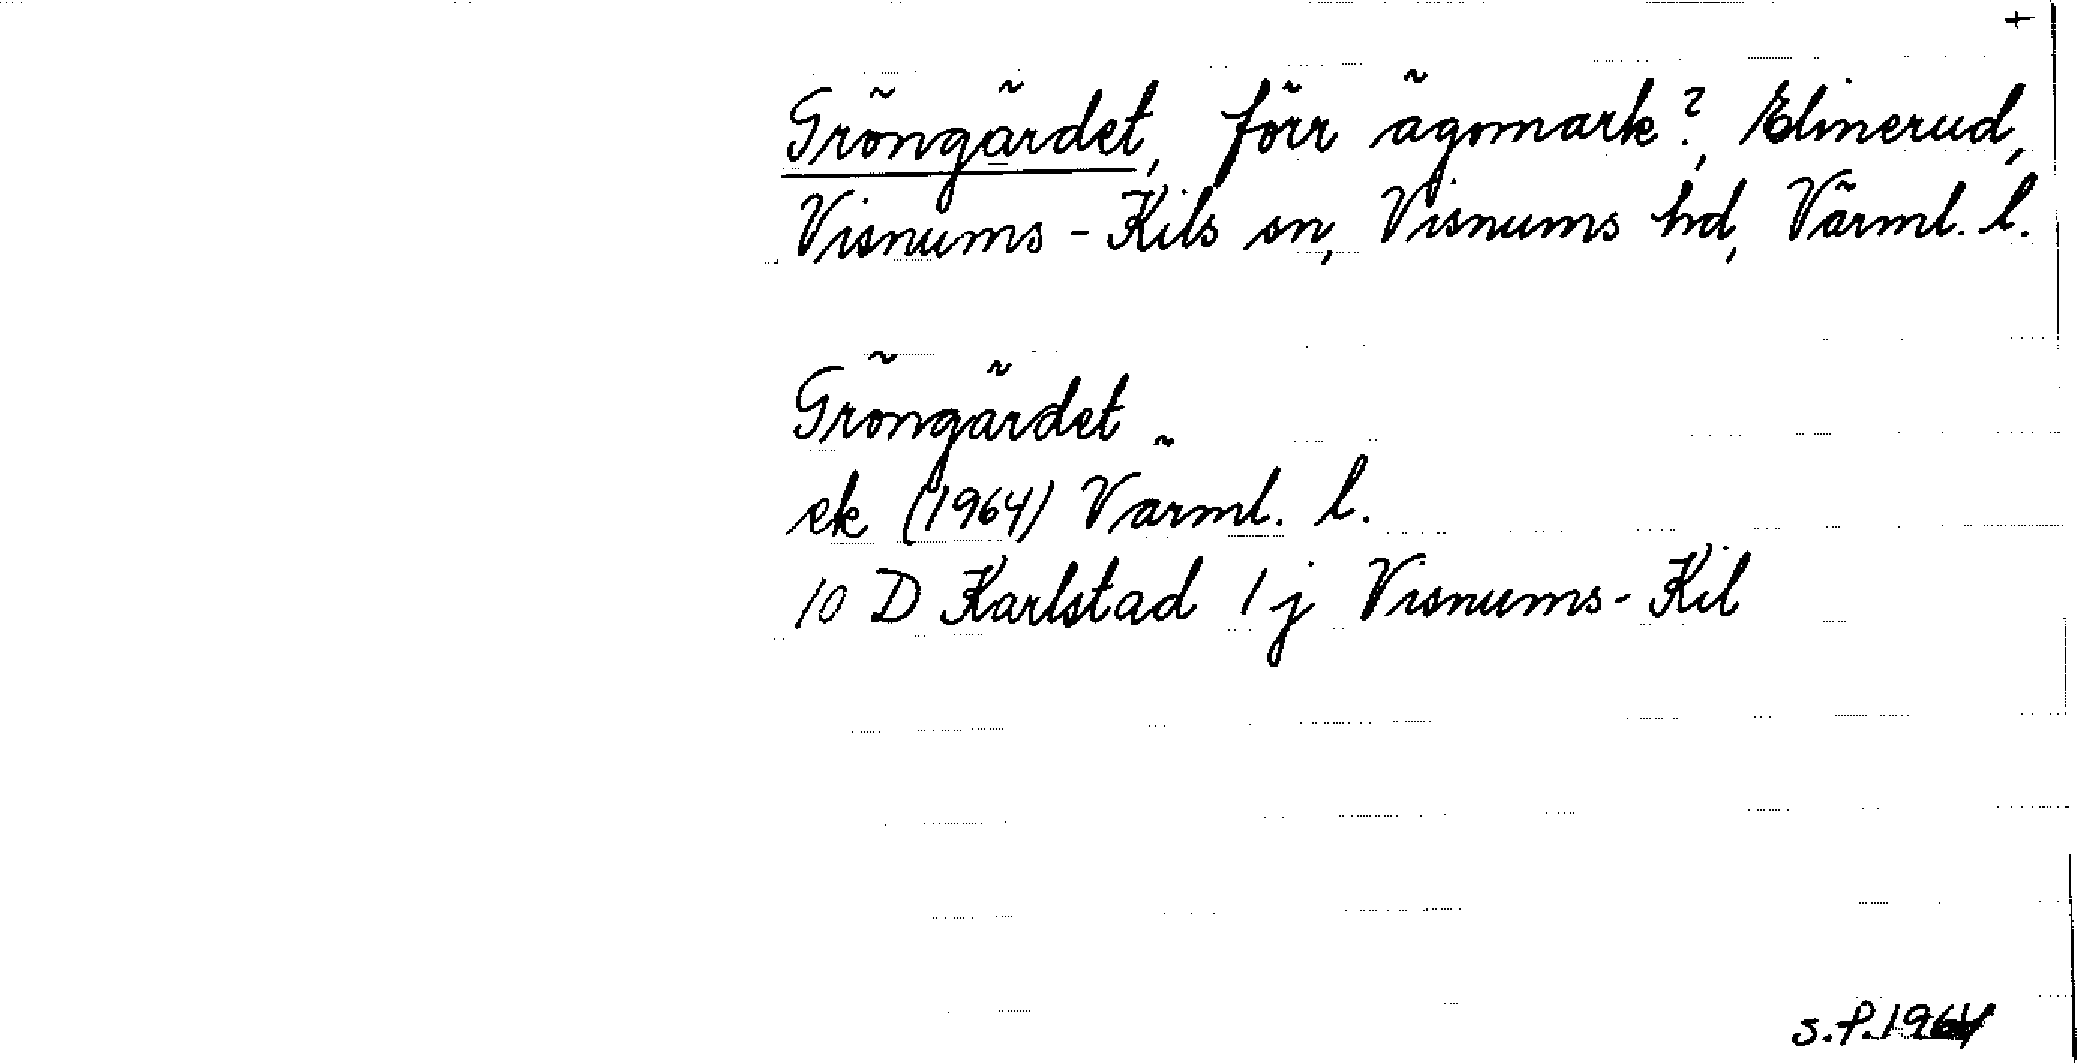 +
Gröngärdet, förr ägomark?, Elinerud,
Visnums-Kils sn, Visnums hd, Värml. l.
Gröngärdet
ek (1964) Värml. l.
10 D Karlstad 1 j Visnums-Kil
s.f. 1964